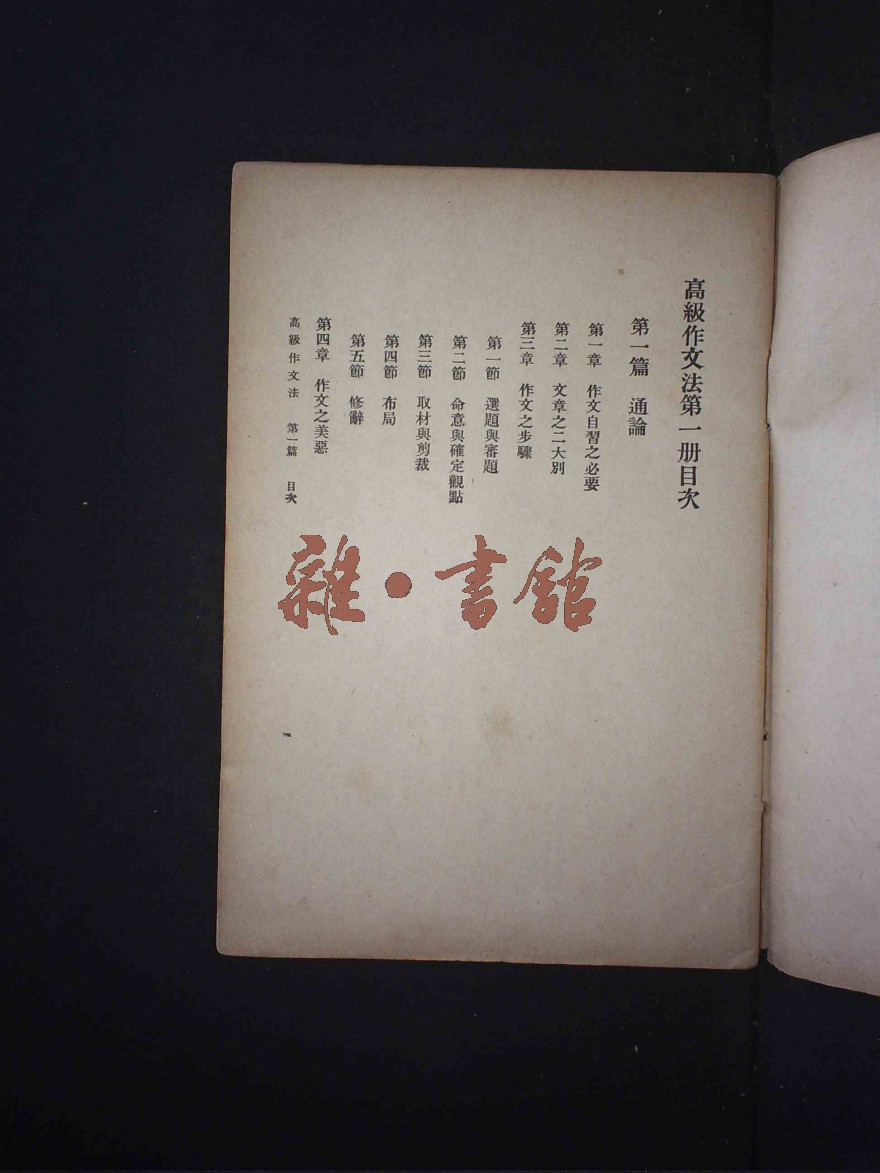 高級作文法第一册目次
第一篇 通論
第一章 作文自習之必要
第二章 文章之二大別
第三章 作文之步驟
第一節 選題與審題
第二節 命意與確定觀點
第三節 取材與剪裁
第四節 布局
第五節 修辭
第四章 作文之美惡
高級作文法 第一篇 目次
雜·書館